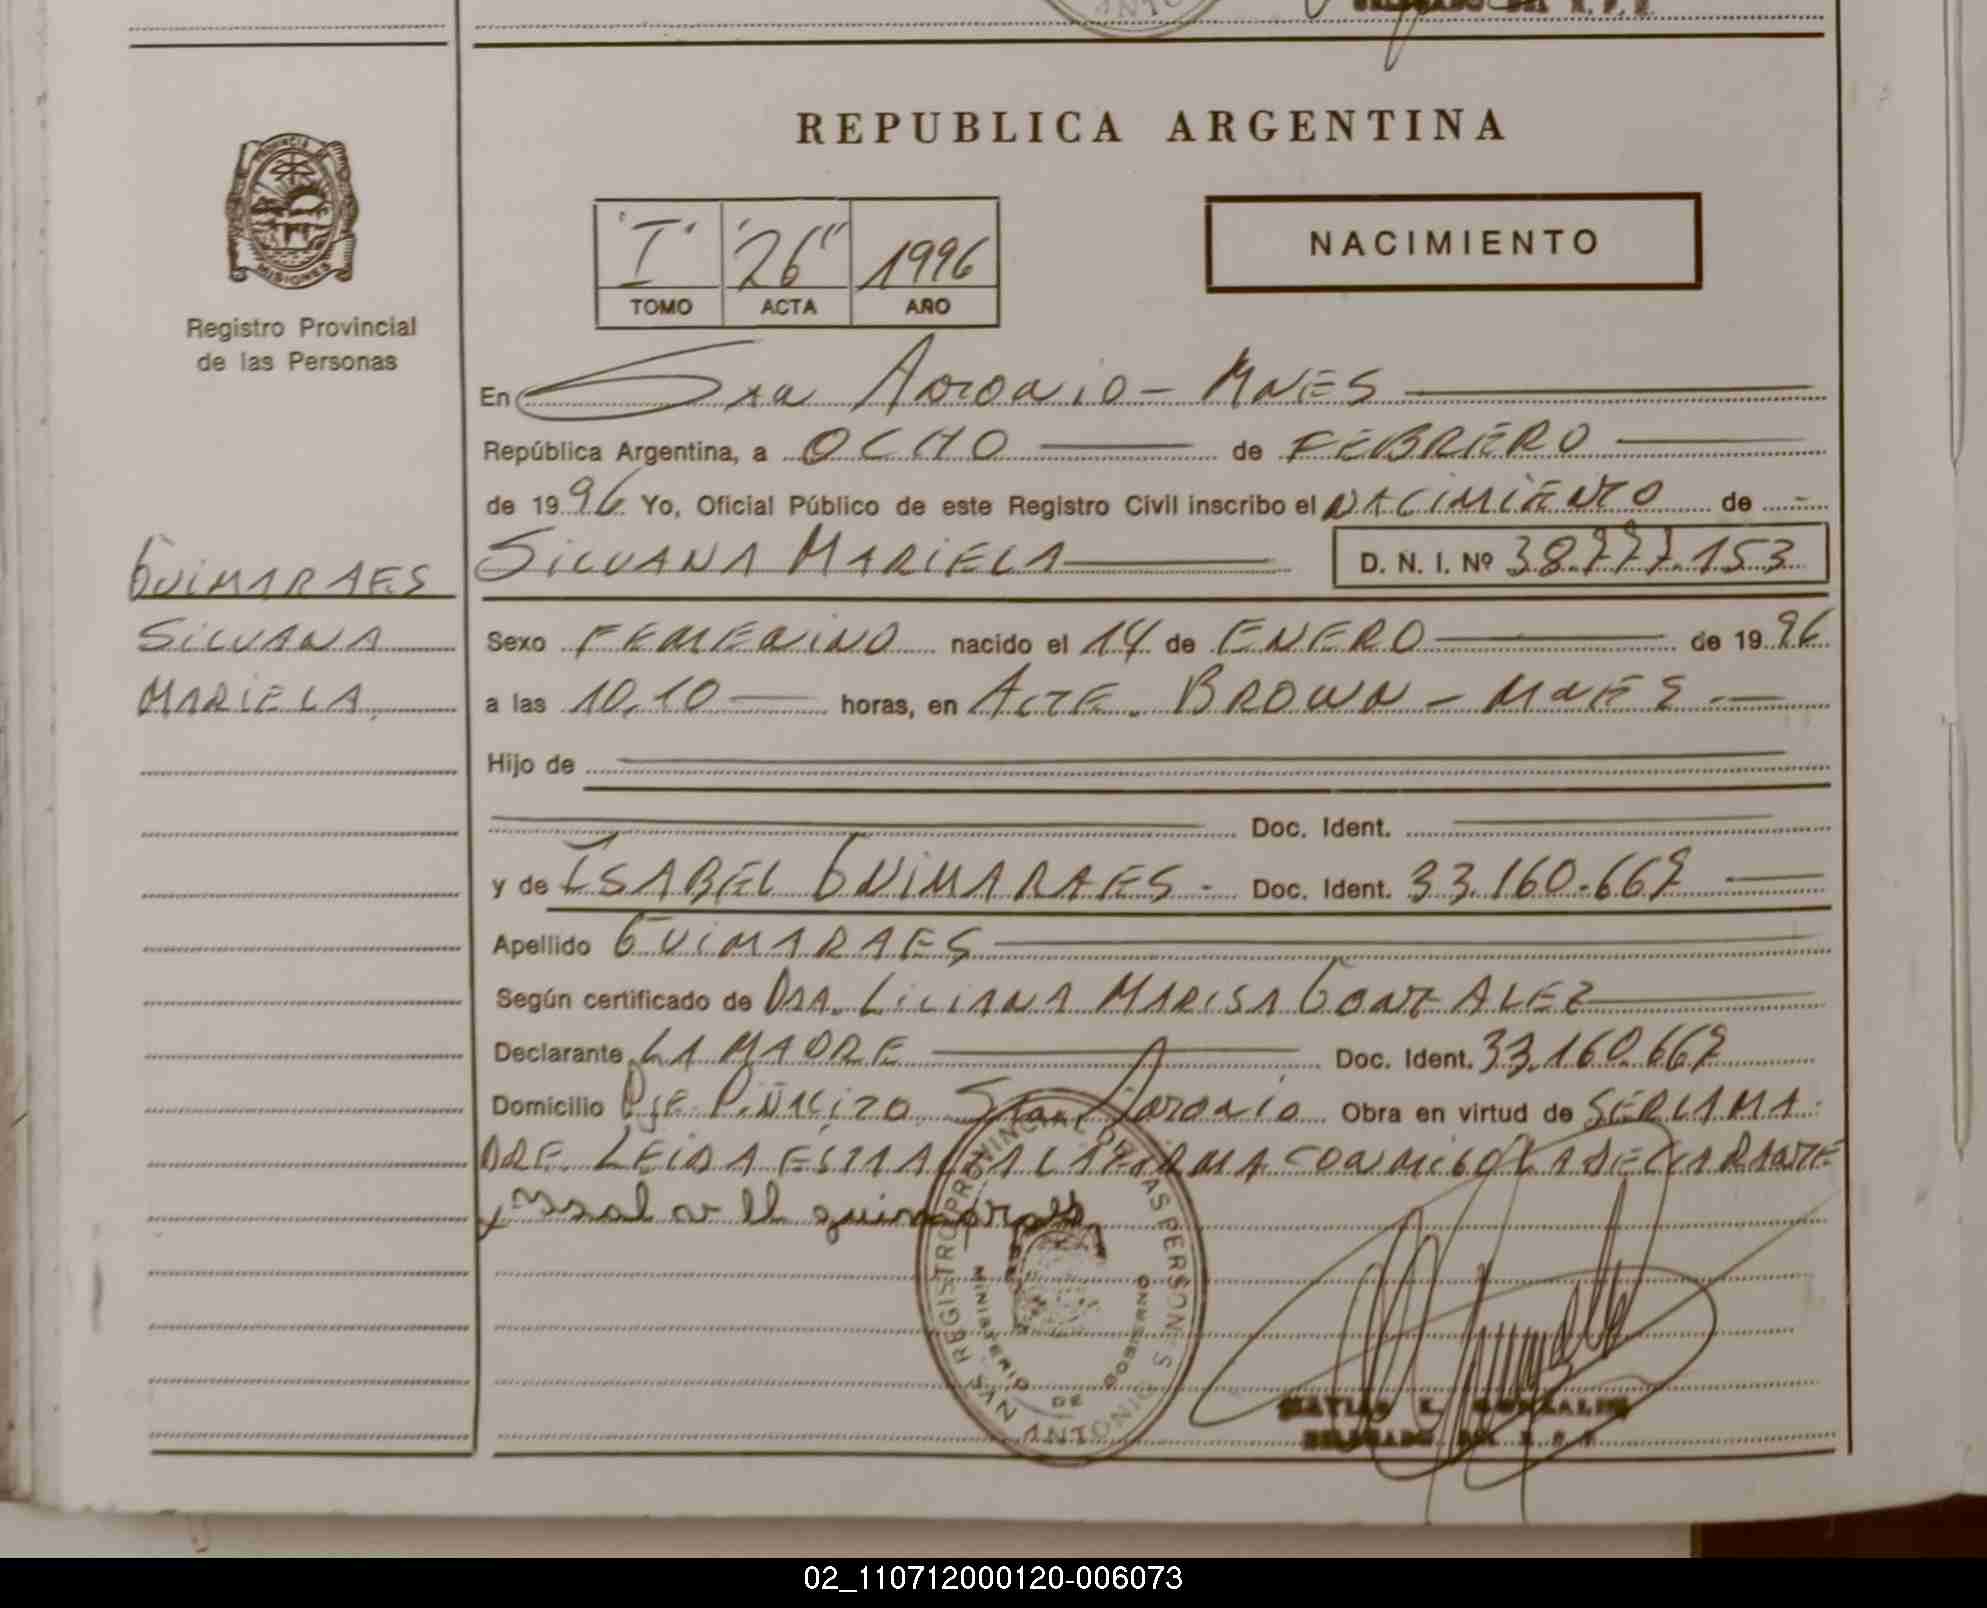 REPUBLICA ARGENTINA
PROVINCIA DE
MISIONES
Registro Provincial
de las Personas
"I" "26" 1996
TOMO ACTA AÑO
NACIMIENTO
En San Antonio - Mnes
República Argentina, a OCHO de FEBRERO
de 1996 Yo, Oficial Público de este Registro Civil inscribo el NACIMIENTO de
SILVANA MARIELA D. N. I. Nº 38.777.153
GUIMARAES
SILVANA
MARIELA
Sexo FEMENINO nacido el 14 de ENERO de 1996
a las 10,10 horas, en ALTE. BROWN - MNES
Hijo de
Doc. Ident.
y de ISABEL GUIMARAES - Doc. Ident. 33.160.667
Apellido GUIMARAES
Según certificado de DRA. LILIANA MARISA GONZALEZ
Declarante LA MADRE Doc. Ident. 33.160.667
Domicilio Pje San Antonio Obra en virtud de SER LA MA
DRE LEIDA ESTA ACTA LA FIRMA CONMIGO LA DECLARANTE
guimaraes
REGISTRO PROVINCIAL DE LAS PERSONAS
MINISTERIO DE GOBIERNO
SAN ANTONIO
MATIAS E. GONZALEZ
DELEGADO DEL R. P. P.
02_110712000120-006073